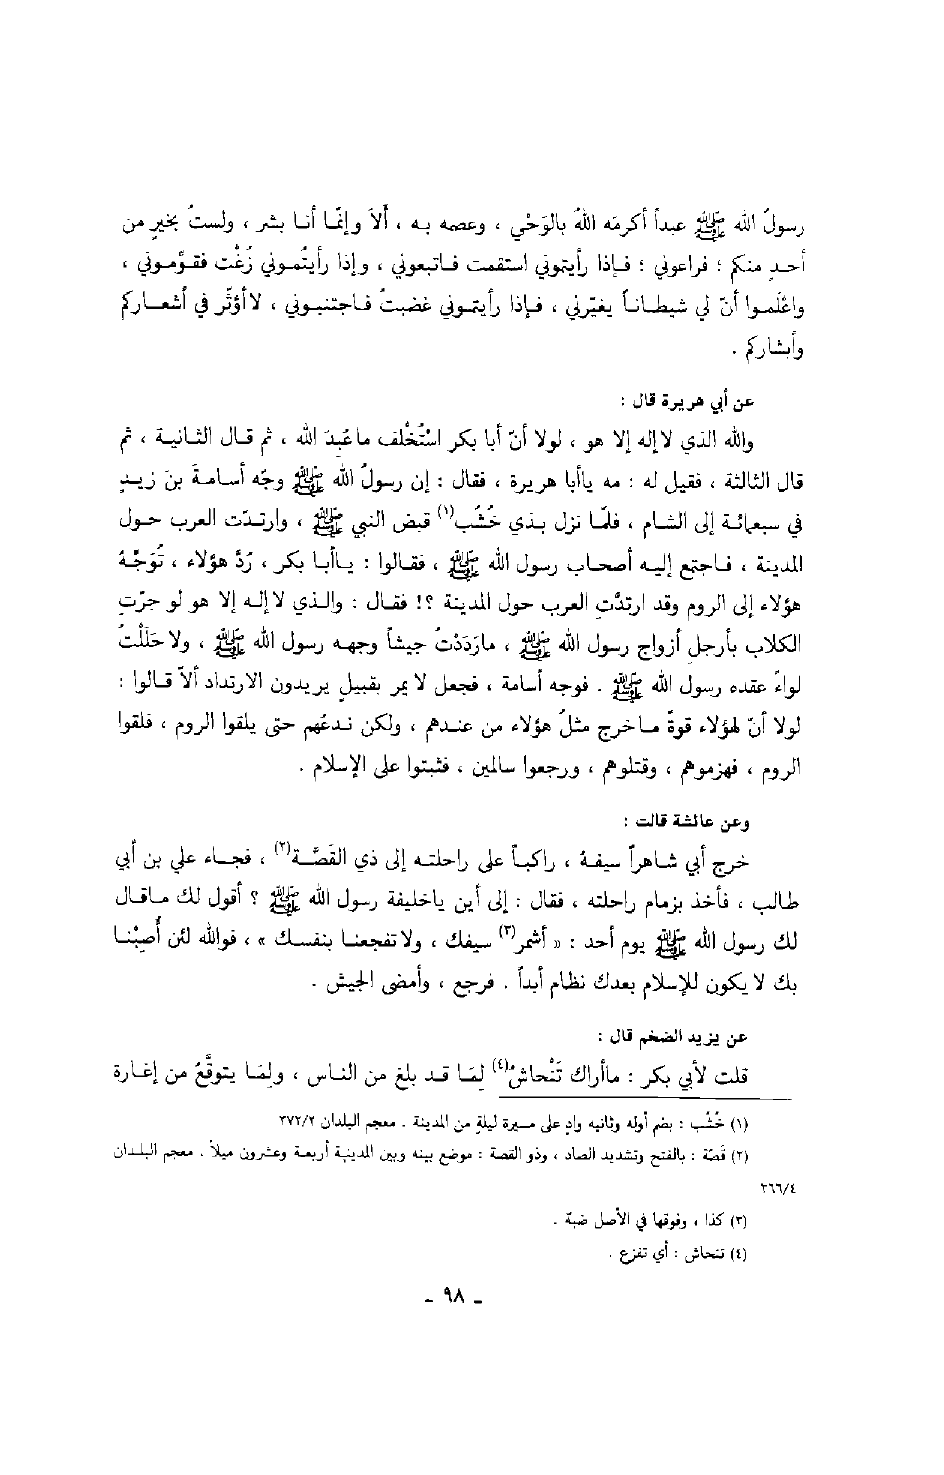 رسولُ الله ﷺ عبداً أكرمَه اللهُ بالوَحْي ، وعصمه به ، ألاَ وإنَّما أنا بشر ، ولستُ بخيرٍ من
أحدٍ منكم ؛ فراعوني ؛ فإذا رأيتموني استقمت فاتبعوني ، وإذا رأيتُموني زُغْت فقوِّموني ،
واعْلَموا أنّ لي شيطاناً يعتريني ، فإذا رأيتموني غضبتُ فاجتنبوني ، لا أؤثّر في أشعاركم
وأبشاركم .
عن أبي هريرة قال :
والله الذي لا إله إلا هو ، لولا أنّ أبا بكر اسْتُخْلف ما عُبِدَ الله ، ثم قال الثانية ، ثم
قال الثالثة ، فقيل له : مه ياأبا هريرة ، فقال : إن رسولُ الله ﷺ وجّه أسامةَ بنَ زيدٍ
في سبعمائة إلى الشام ، فلمّا نزل بذي خُشُب(١) قبض النبي ﷺ ، وارتدّت العرب حول
المدينة ، فاجتمع إليه أصحاب رسول الله ﷺ ، فقالوا : ياأبا بكر ، رُدَّ هؤلاء ، تُوَجّهُ
هؤلاء إلى الروم وقد ارتدَّتِ العرب حول المدينة ؟! فقال : والذي لا إله إلا هو لو جرّتِ
الكلاب بأرجلِ أزواج رسول الله ﷺ ، مارَدَدْتُ جيشاً وجهه رسول الله ﷺ ، ولا حَلَلْتُ
لواءً عقده رسول الله ﷺ . فوجه أسامة ، فجعل لا يمر بقبيلٍ يريدون الارتداد ألاّ قالوا :
لولا أنّ لهؤلاء قوةً ماخرج مثلُ هؤلاء من عندهم ، ولكن ندعُهم حتى يلقوا الروم ، فلقوا
الروم ، فهزموهم ، وقتلوهم ، ورجعوا سالمين ، فثبتوا على الإسلام .
وعن عائشة قالت :
خرج أبي شاهراً سيفهُ ، راكباً على راحلته إلى ذي القَصَّة(٢) ، فجاء علي بن أبي
طالب ، فأخذ بزمام راحلته ، فقال : إلى أين ياخليفة رسول الله ﷺ ؟ أقول لك ماقال
لك رسول الله ﷺ يوم أحد : « أشمر(٣) سيفك ، ولا تفجعنا بنفسك » ، فوالله لئن أُصِبْنا
بك لا يكون للإسلام بعدك نظام أبداً . فرجع ، وأمضى الجيش .
عن يزيد الضخم قال :
قلت لأبي بكر : ماأراك تَنْحاشُ(٤) لِمَا قد بلغ من الناس ، ولِمَا يتوقَّعُ من إغارة
(١) خُشُب : بضم أوله وثانيه وادٍ على مسيرة ليلةٍ من المدينة . معجم البلدان ٣٧٢/٢
(٢) قَصّة : بالفتح وتشديد الصاد ، وذو القصة : موضع بينه وبين المدينة أربعة وعشرون ميلاً . معجم البلدان
٣٦٦/٤
(٣) كذا ، وفوقها في الأصل ضبّة .
(٤) تنحاش : أي تفزع .
- ٩٨ -